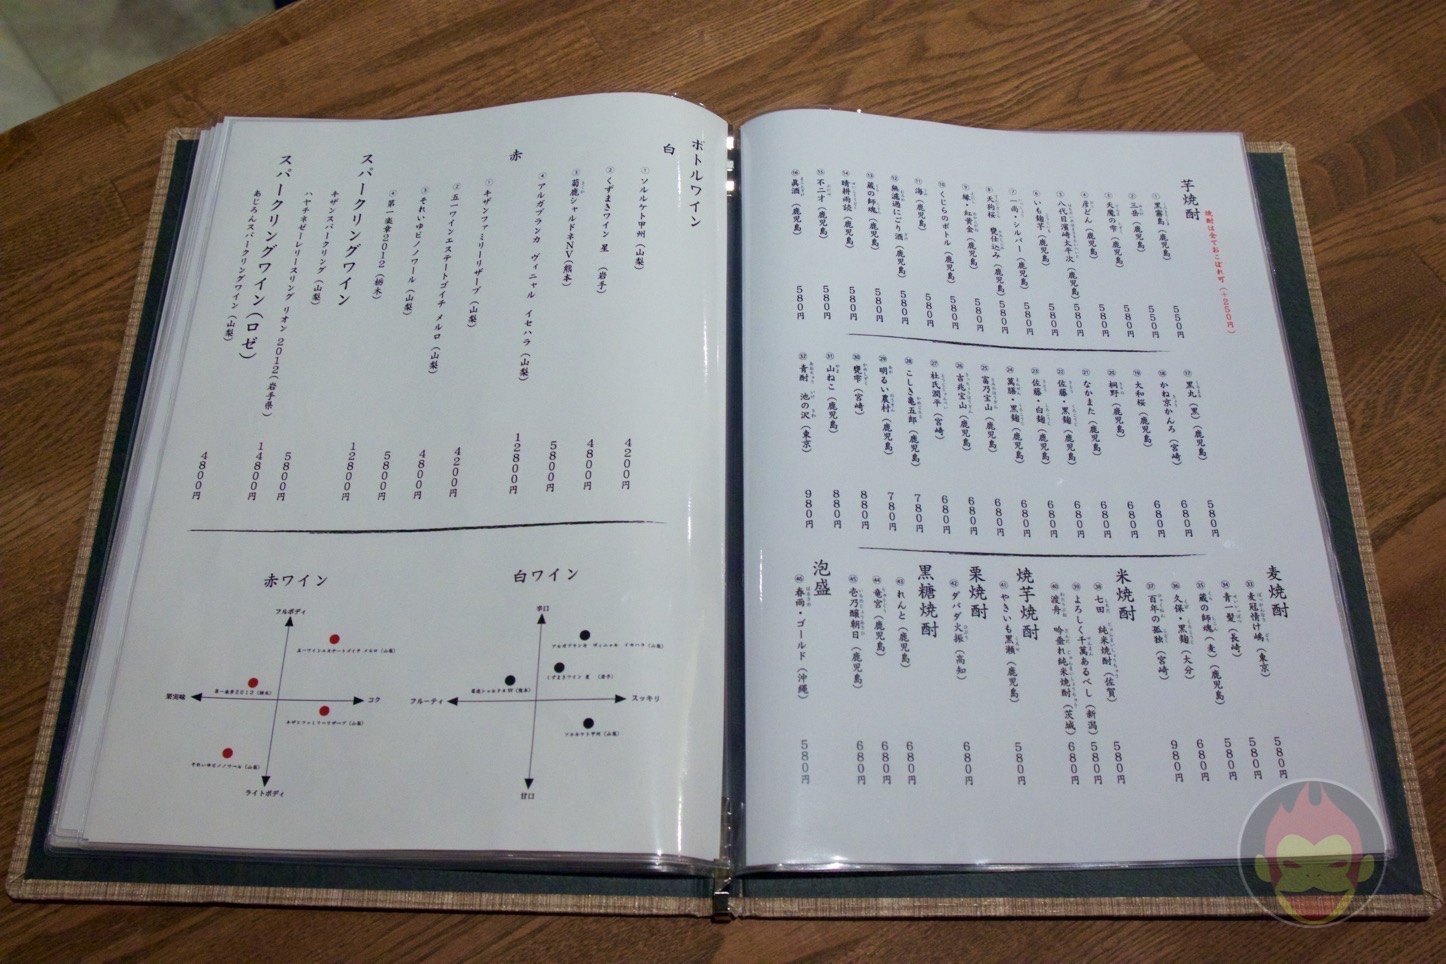 芋焼酎
焼酎は全ておこぼれ可（＋250円）
①黒霧島（鹿児島） 550円
②三岳（鹿児島） 550円
③天魔の雫（鹿児島） 580円
④彦どん（鹿児島） 580円
⑤八代目濱崎太平次（鹿児島） 580円
⑥いも麹芋（鹿児島） 580円
⑦一尚・シルバー（鹿児島） 580円
⑧天狗桜 甕仕込み（鹿児島） 580円
⑨縁・紅黄金（鹿児島） 580円
⑩くじらのボトル（鹿児島） 580円
⑪海（鹿児島） 580円
⑫無濾過にごり酒（鹿児島） 580円
⑬蔵の師魂（鹿児島） 580円
⑭晴耕雨読（鹿児島） 580円
⑮不二才（鹿児島） 580円
⑯眞酒（鹿児島） 580円
⑰黒丸（黒）（鹿児島） 580円
⑱かね京かんろ（宮崎） 680円
⑲大和桜（鹿児島） 680円
⑳桐野（鹿児島） 680円
㉑なかまた（鹿児島） 680円
㉒佐藤・黒麹（鹿児島） 680円
㉓佐藤・白麹（鹿児島） 680円
㉔萬膳・黒麹（鹿児島） 680円
㉕富乃宝山（鹿児島） 680円
㉖吉兆宝山（鹿児島） 680円
㉗杜氏潤平（宮崎） 680円
㉘こしき亀五郎（鹿児島） 780円
㉙明るい農村（鹿児島） 780円
㉚甕雫（宮崎） 880円
㉛山ねこ（鹿児島） 880円
㉜青酎 池の沢（東京） 980円
麦焼酎
㉝麦冠情け嶋（東京） 580円
㉞青一髪（長崎） 580円
㉟蔵の師魂（麦）（鹿児島） 580円
㊱久保・黒麹（大分） 680円
㊲百年の孤独（宮崎） 980円
米焼酎
㊳七田 純米焼酎（佐賀） 580円
㊴よろしく千萬あるべし（新潟） 580円
㊵渡舟 吟垂れ純米焼酎（茨城） 680円
焼芋焼酎
㊶やきいも黒瀬（鹿児島） 580円
栗焼酎
㊷ダバダ火振（高知） 680円
黒糖焼酎
㊸れんと（鹿児島） 680円
㊹竜宮（鹿児島） 680円
㊺壱乃醸朝日（鹿児島） 680円
泡盛
㊻春雨・ゴールド（沖縄） 580円
ボトルワイン
白
①ソルルケト甲州（山梨） 4200円
②くずまきワイン 星 （岩手） 4800円
③菊鹿シャルドネNV（熊本） 5800円
④アルガブランカ ヴィニャル イセハラ（山梨） 12800円
赤
①キザンファミリーリザーブ（山梨） 4200円
②五一ワインエステートゴイチ メルロ（山梨） 4800円
③それいゆピノノワール（山梨） 5800円
④第一楽章2012（栃木） 12800円
スパークリングワイン
キザンスパークリング（山梨） 5800円
ハヤチネゼーレリースリング リオン 2012（岩手県） 14800円
スパークリングワイン（ロゼ）
あじろんスパークリングワイン（山梨） 4800円
白ワイン
辛口
アルガブランカ ヴィニャル イセハラ（山梨）
くずまきワイン 星 （岩手）
菊鹿シャルドネNV（熊本）
フルーティ
スッキリ
ソルルケト甲州（山梨）
甘口
赤ワイン
フルボディ
五一ワインエステートゴイチ メルロ（山梨）
第一楽章2012（栃木）
果実味
コク
キザンファミリーリザーブ（山梨）
それいゆピノノワール（山梨）
ライトボディ